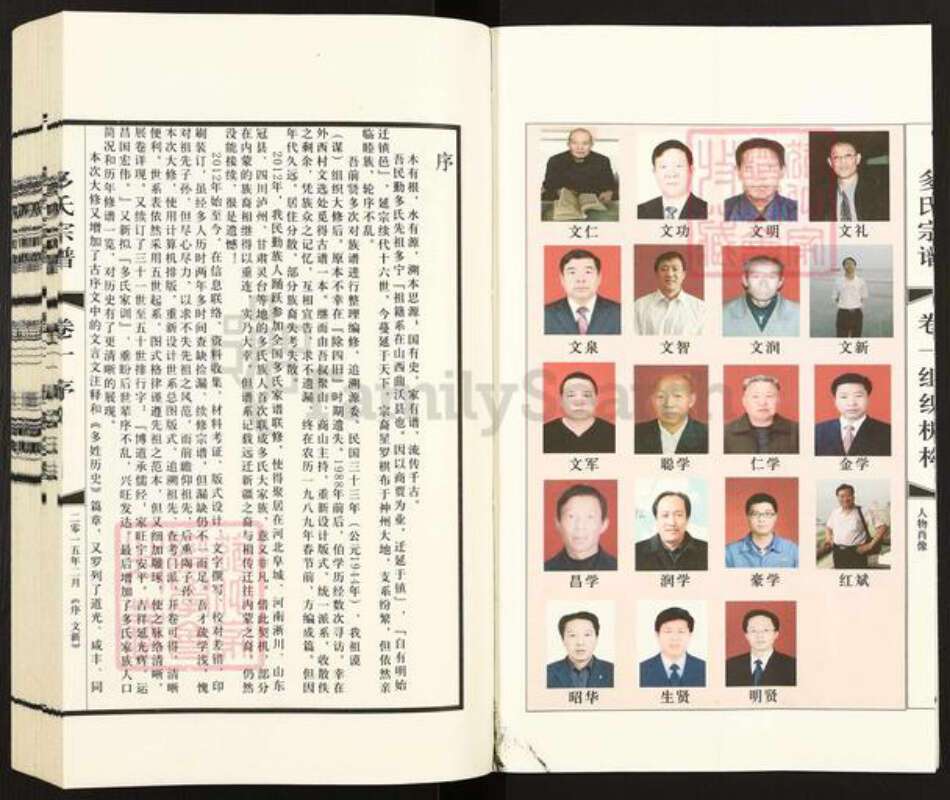 序
木有根，水有源，溯本思源，国有史，家有谱，流传千古。
吾民勤多氏先祖多宁『祖籍系在山西曲沃县也。因以商贾为业，迁延于镇』，『自有明始
迁镇邑』，延宗续代十六世，今蔓延于天下，宗裔星罗棋布于神州大地，支系纷繁，但依然亲
临睦族，轮序不乱。
吾前贤多次对族谱进行整理编修，追溯源委，民国三十三年（公元1944年），我祖谟
（谋）组织大修后，原本不幸在『除四旧』时期遗失。1988年前后，伯学历经数次寻访，幸在
外西村文选处觅得古谱一本。继而由吾叔聚山、商山主持，重新设计版式，统一派系，收散佚
之剩余，凭族众之记忆，互相宣告，以求不遗漏，终在农历一九八九年春节前，方编成篇。但因
年代久远，居住分散，部分族裔失考失散。
2012年，我民勤族人踊跃参加全国多氏家谱联修，使得聚居在河北阜城、河南淅川、山东
冠县、四川泸州、甘肃灵台等地的多氏族人首次联成多氏大家族，意义非凡。借此契机，部分
在内蒙古的族裔相继得以重连，实乃大幸，但谱系记载远迁新疆之裔与相传迁往内蒙之裔，仍然
没能接续，很是遗憾！
2012年始至今，在信息联络、资料收集、材料考证、版式设计、文字撰写、校对差错、印
刷装订，虽经多人历时两年多时间查缺捡漏，续修宗谱，但漏缺仍不一而足，吾才疏学浅，愧
对祖先子孙，但尽心尽力，以求不失先祖之风范，而前瞻仰祖先，后重陶子孙。
本次大修，使用计算机排版，重新设计世系总图版式，追溯祖先，查考门派，开卷可得，清晰
便利。世系表依然采用五世起系，图式格律谨遵先祖之范本，但又细加雕琢，使之脉络清晰，
展卷详现。又续订了三十一世至五十世排行字：『博道承儒经，家旺宇安平，吉祥延光辉，运
昌国宏伟。』又新拟『多氏家训』，重盼后世辈序不乱，兴旺发达！最后增加了多氏家族人口
简况和历年修谱一览，对历史有了更清晰的展现。
本次大修又增加了古序文中的文言文注释和《多姓历史》篇章，又罗列了道光、咸丰、同
多氏宗谱
卷一
序
二零一五年二月《序 文新》
文仁 文功 文明 文礼
文泉 文智 文润 文新
文军 聪学 仁学 金学
昌学 润学 豪学 红斌
昭华 生贤 明贤
多氏宗谱
卷一
组织机构
人物肖像
FamilySearch